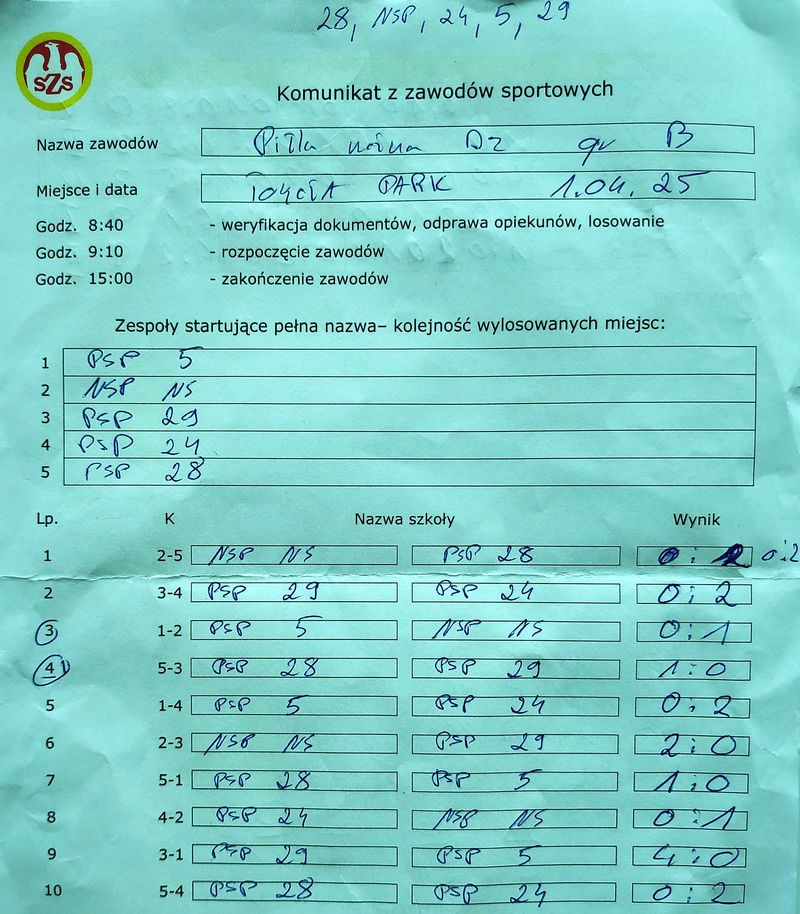 28, NSP, 24, 5, 29
SZS
Komunikat z zawodów sportowych
Nazwa zawodów Piłka nożna Dz gr B
Miejsce i data TOYOTA PARK 1.04.25
Godz. 8:40 - weryfikacja dokumentów, odprawa opiekunów, losowanie
Godz. 9:10 - rozpoczęcie zawodów
Godz. 15:00 - zakończenie zawodów
Zespoły startujące pełna nazwa– kolejność wylosowanych miejsc:
1 PSP 5
2 NSP NS
3 PSP 29
4 PSP 24
5 PSP 28
Lp. K Nazwa szkoły Wynik
1 2-5 NSP NS PSP 28 0:2 0:2
2 3-4 PSP 29 PSP 24 0:2
3 1-2 PSP 5 NSP NS 0:1
4 5-3 PSP 28 PSP 29 1:0
5 1-4 PSP 5 PSP 24 0:2
6 2-3 NSP NS PSP 29 2:0
7 5-1 PSP 28 PSP 5 1:0
8 4-2 PSP 24 NSP NS 0:1
9 3-1 PSP 29 PSP 5 4:0
10 5-4 PSP 28 PSP 24 0:2